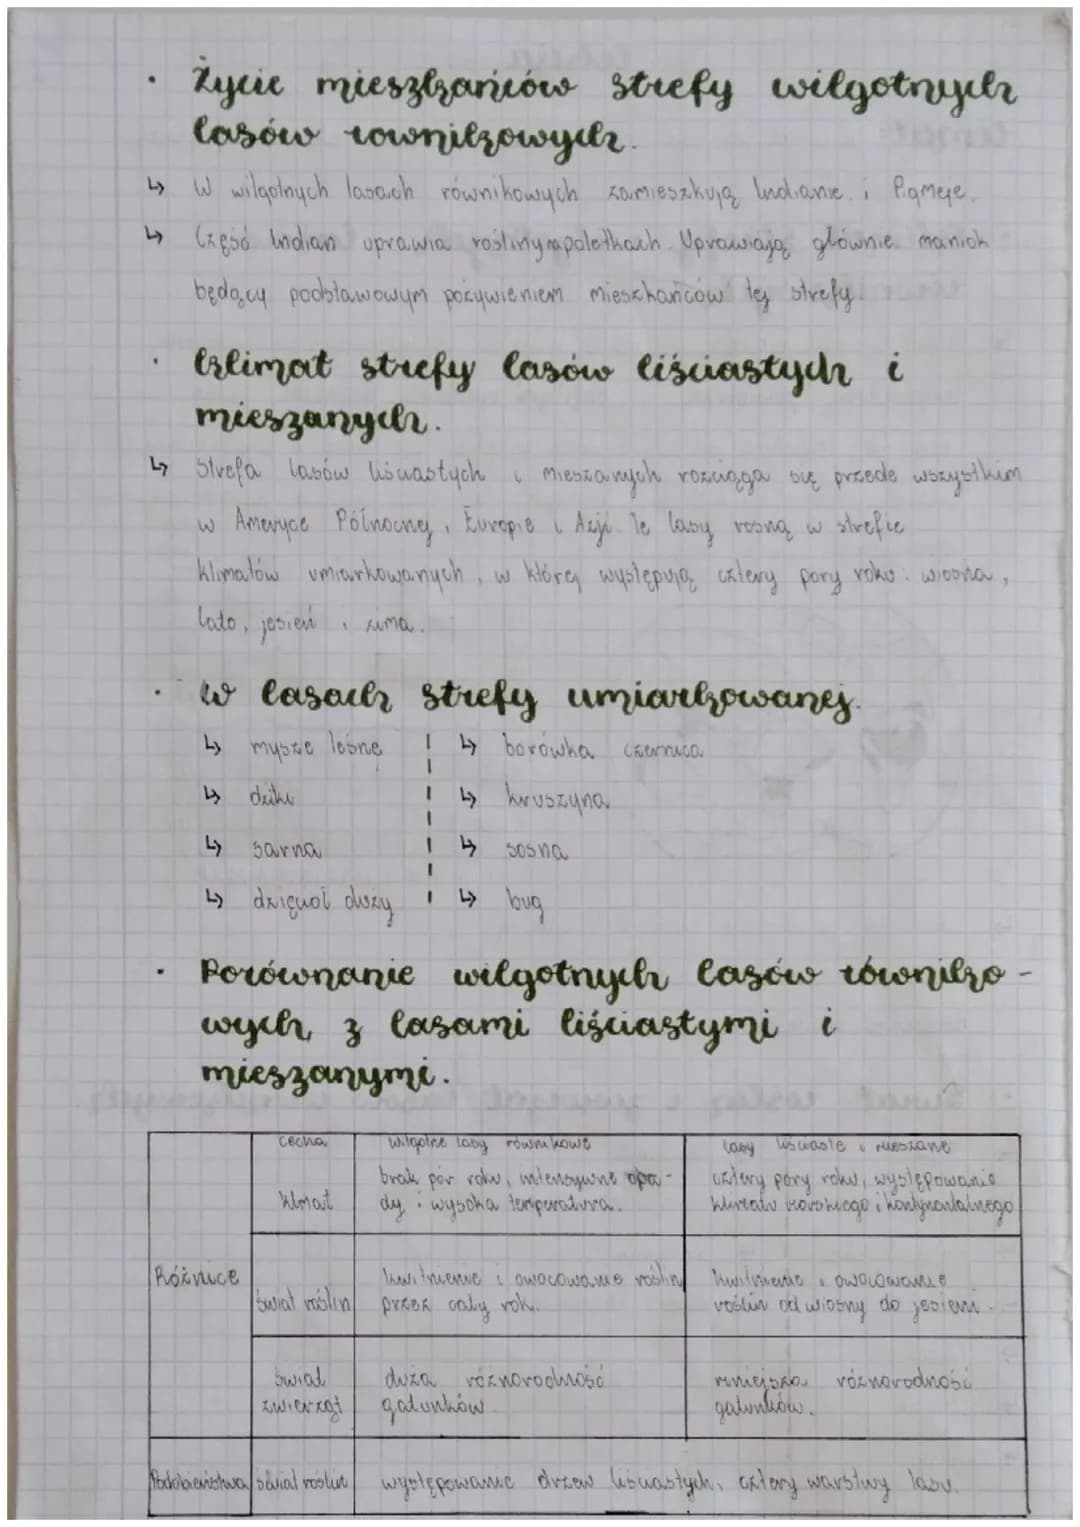 • Życie mieszkańców strefy wilgotnych
lasów rownikowych.
↳ W wilgotnych lasach równikowych zamieszkują Indianie i Pigmeje.
↳ Część Indian uprawia rośliny na poletkach. Uprawiają głównie maniok
będący podstawowym pożywieniem mieszkańców tej strefy.
• Klimat strefy lasów liściastych i
mieszanych.
↳ Strefa lasów liściastych i mieszanych rozciąga się przede wszystkim
w Ameryce Północnej, Europie i Azji. Te lasy rosną w strefie
klimatów umiarkowanych, w której występują cztery pory roku: wiosna,
lato, jesień i zima.
• W lasach strefy umiarkowanej.
↳ mysze leśne ↳ borówka czernica
↳ dziki ↳ kruszyna
↳ sarna ↳ sosna
↳ dzięcioł duży ↳ bug
• Porównanie wilgotnych lasów równiko-
wych z lasami liściastymi i
mieszanymi.
cecha wilgotne lasy równikowe lasy liściaste i mieszane
klimat brak pór roku, intensywne opa-
dy i wysoka temperatura.
cztery pory roku, występowanie
klimatu morskiego i kontynentalnego
Różnice
świat roślin kwitnienie i owocowanie roślin
przez cały rok.
kwitnienie i owocowanie
roślin od wiosny do jesieni.
świat
zwierząt
duża różnorodność
gatunków.
mniejsza różnorodność
gatunków.
Podobieństwa świat roślin występowanie drzew liściastych, cztery warstwy lasu.